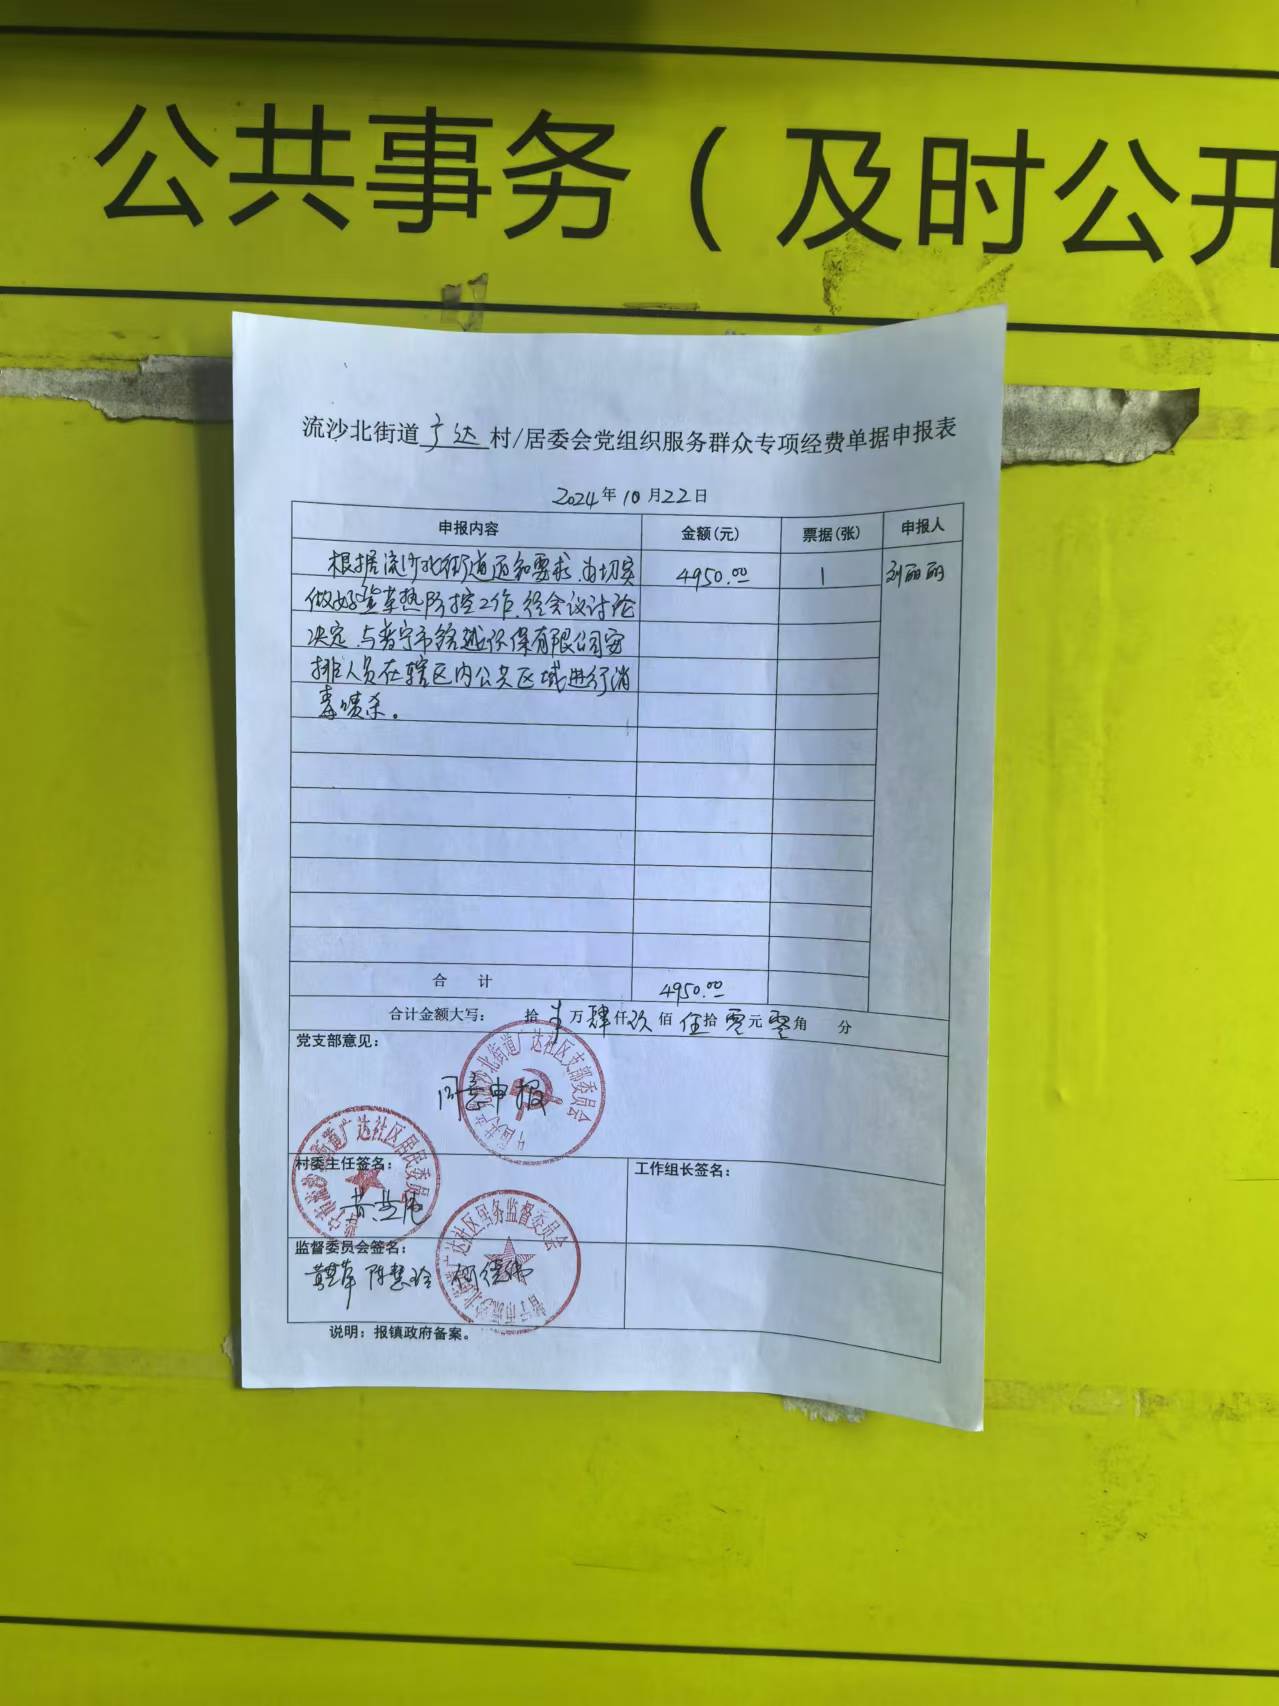 公共事务（及时公开
流沙北街道广达村/居委会党组织服务群众专项经费单据申报表
2024年10月22日
申报内容 金额(元) 票据(张) 申报人
根据流沙北街道通知要求,为切实 4950.00 1 刘丽丽
做好登革热防控工作,经会议讨论
决定,与普宁市 环保有限公司安
排人员在辖区内公共区域进行消
毒喷杀。
合 计 4950.00
合计金额大写： 拾 万肆仟玖佰伍拾零元零角 分
党支部意见：
同意申报
中国共产党 流沙北街道广达社区支部委员会
村委主任签名： 工作组长签名：
普宁市流沙北街道广达社区居民委员会
监督委员会签名：
陈慧玲 何德
普宁市流沙北街道广达社区居务监督委员会
说明：报镇政府备案。